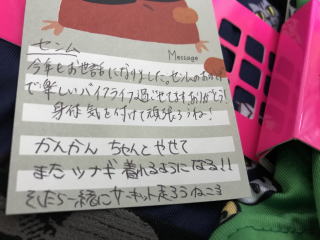 センム
Message
今年もお世話になりました。センムのおかげ
で楽しいバイクライフ過ごせてます ありがとう!
身体気を付けて頑張ろうね!
かんかん ちゃんとやせて
またツナギ着れるようになる!!
そしたら一緒にサーキット走ろうね